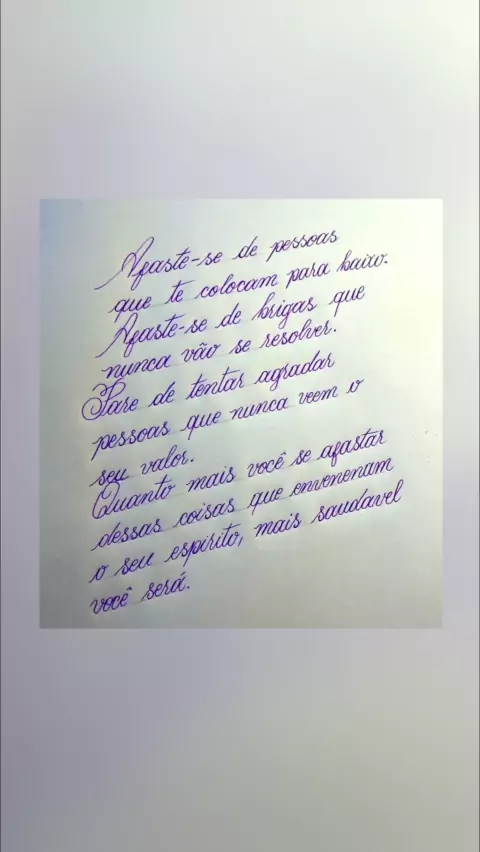 Afaste-se de pessoas
que te colocam para baixo.
Afaste-se de brigas que
nunca vão se resolver.
Pare de tentar agradar
pessoas que nunca veem o
seu valor.
Quanto mais você se afastar
dessas coisas que envenenam
o seu espirito, mais saudavel
você será.